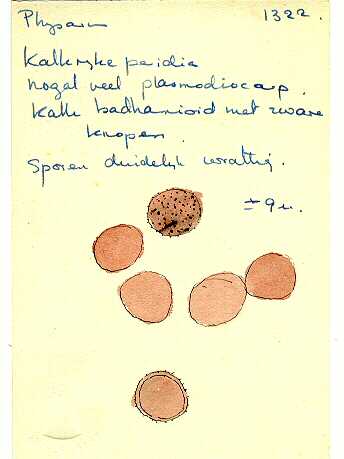 Physarum 1322.
Kalkryke peridia
nogal veel plasmodiocarp.
Kalk badhamioid met zware
knopen.
Sporen duidelyk wrattig.
± 9 u.